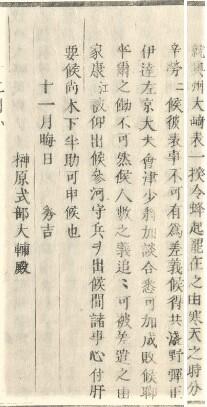 就奥州大崎表一揆令蜂起罷在之由寒天之時分
辛労ニ候彼表卒不可有為差義候得共淺野弾正
伊達左京大夫會津少将加談合悉可加成敗候聊
卒爾之働不可然候人数之義追〻可被差遣之由
家康江被仰出候参河守兵ヲ出候間諸事心付肝
要候尚木下半助可申候也
十一月晦日　秀吉
榊原式部大輔殿